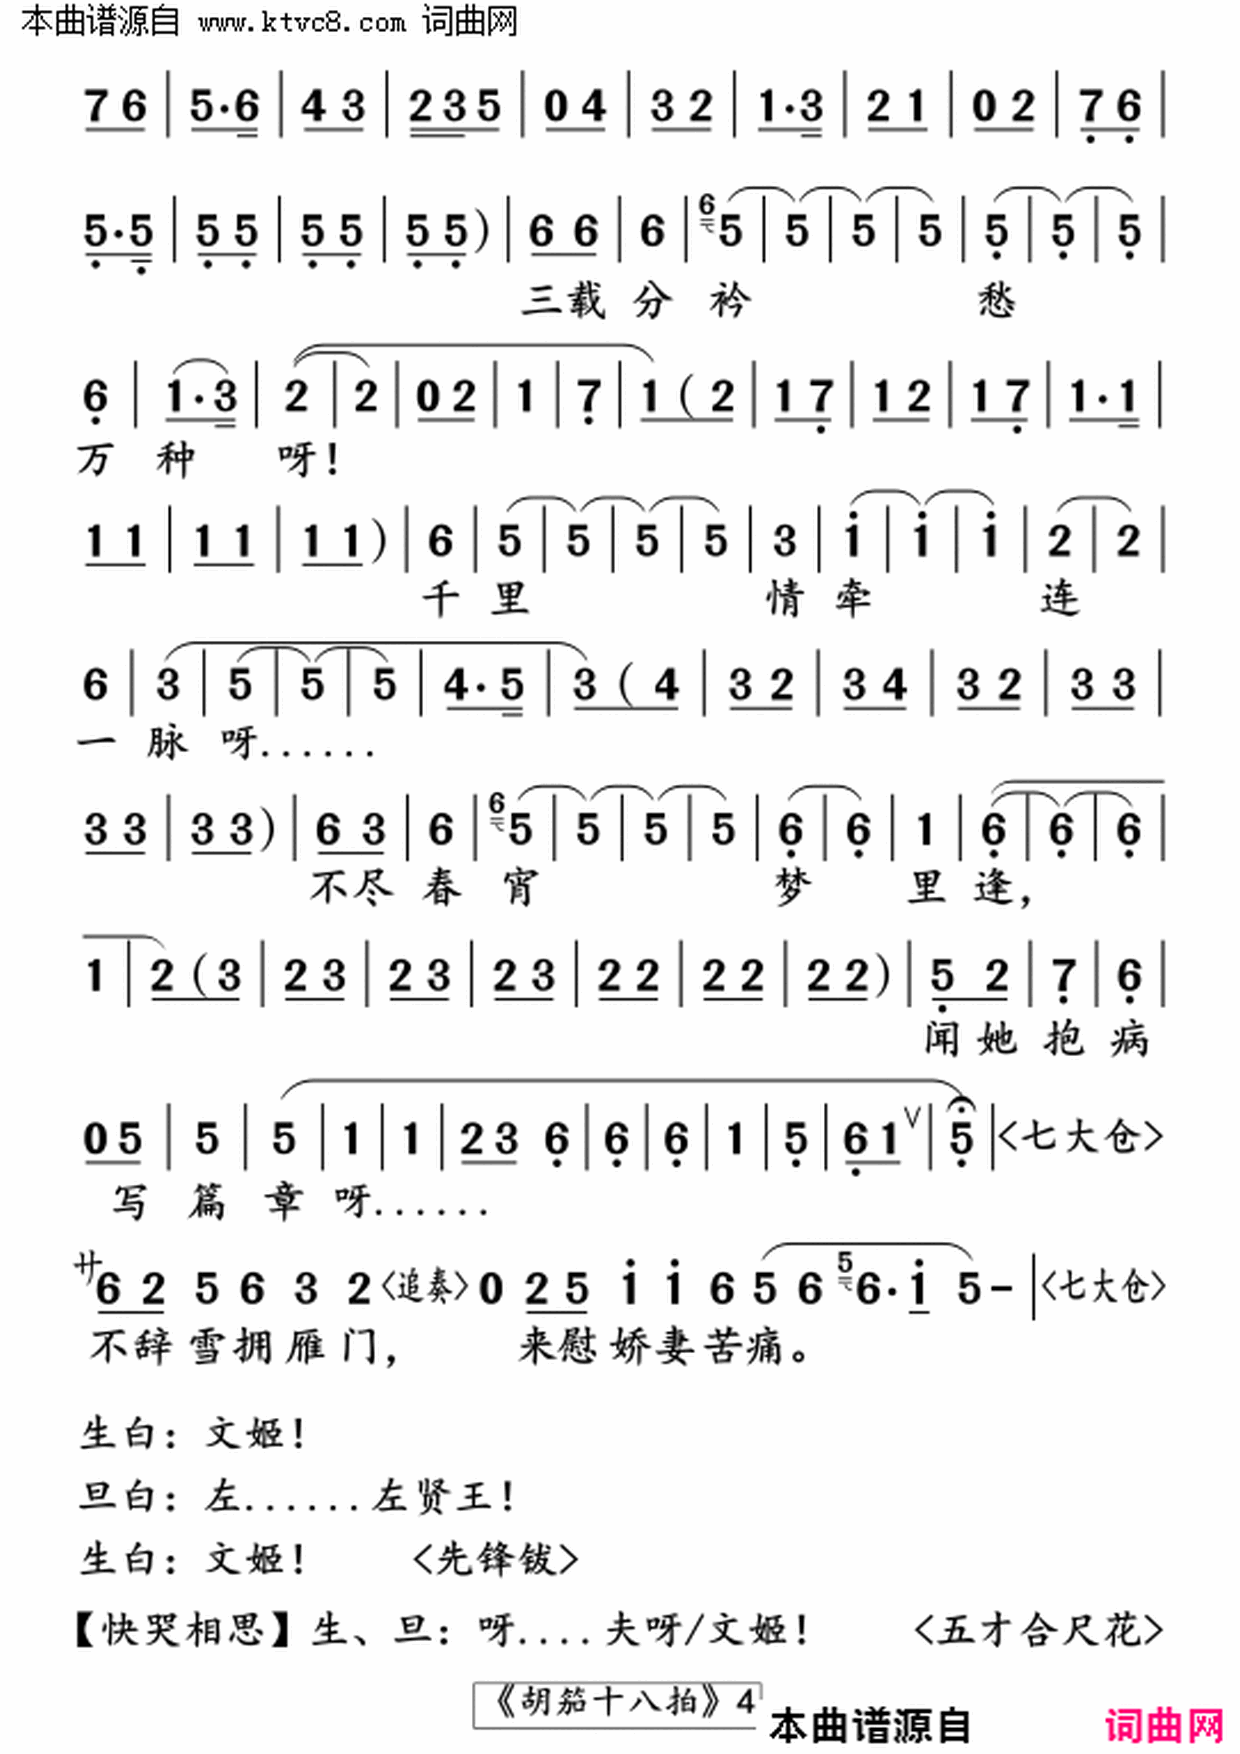 本曲谱源自 www.ktvc8.com 词曲网
7 6 | 5·6 | 4 3 | 2 3 5 | 0 4 | 3 2 | 1·3 | 2 1 | 0 2 | 7 6 |
5·5 | 5 5 | 5 5 | 5 5 ) | 6 6 | 6 | 6 5 | 5 | 5 | 5 | 5 | 5 | 5 |
三载 分 衿 愁
6 | 1·3 | 2 | 2 | 0 2 | 1 | 7 | 1 ( 2 | 1 7 | 1 2 | 1 7 | 1·1 |
万 种 呀!
1 1 | 1 1 | 1 1 ) | 6 | 5 | 5 | 5 | 5 | 3 | i | i | i | 2 | 2 |
千 里 情 牵 连
6 | 3 | 5 | 5 | 5 | 4·5 | 3 ( 4 | 3 2 | 3 4 | 3 2 | 3 3 |
一 脉 呀......
3 3 | 3 3 ) | 6 3 | 6 | 6 5 | 5 | 5 | 5 | 6 | 6 | 1 | 6 | 6 | 6 |
不尽 春 宵 梦 里 逢,
1 | 2 ( 3 | 2 3 | 2 3 | 2 3 | 2 2 | 2 2 | 2 2 ) | 5 2 | 7 | 6 |
闻她 抱 病
0 5 | 5 | 5 | 1 | 1 | 2 3 6 | 6 | 6 | 1 | 5 | 6 1 ∨ | 5 | <七大仓>
写 篇 章 呀......
廾 6 2 5 6 3 2 <追奏> 0 2 5 i i 6 5 6 5 6·i 5 - | <七大仓>
不辞 雪拥雁门, 来慰 娇妻苦痛。
生白: 文姬!
旦白: 左......左贤王!
生白: 文姬! <先锋钹>
【快哭相思】生、旦: 呀....夫呀/文姬! <五才合尺花>
《胡笳十八拍》4
本曲谱源自 词曲网